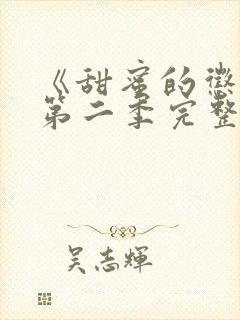 《甜蜜的懲
第二季完整
吴志輝